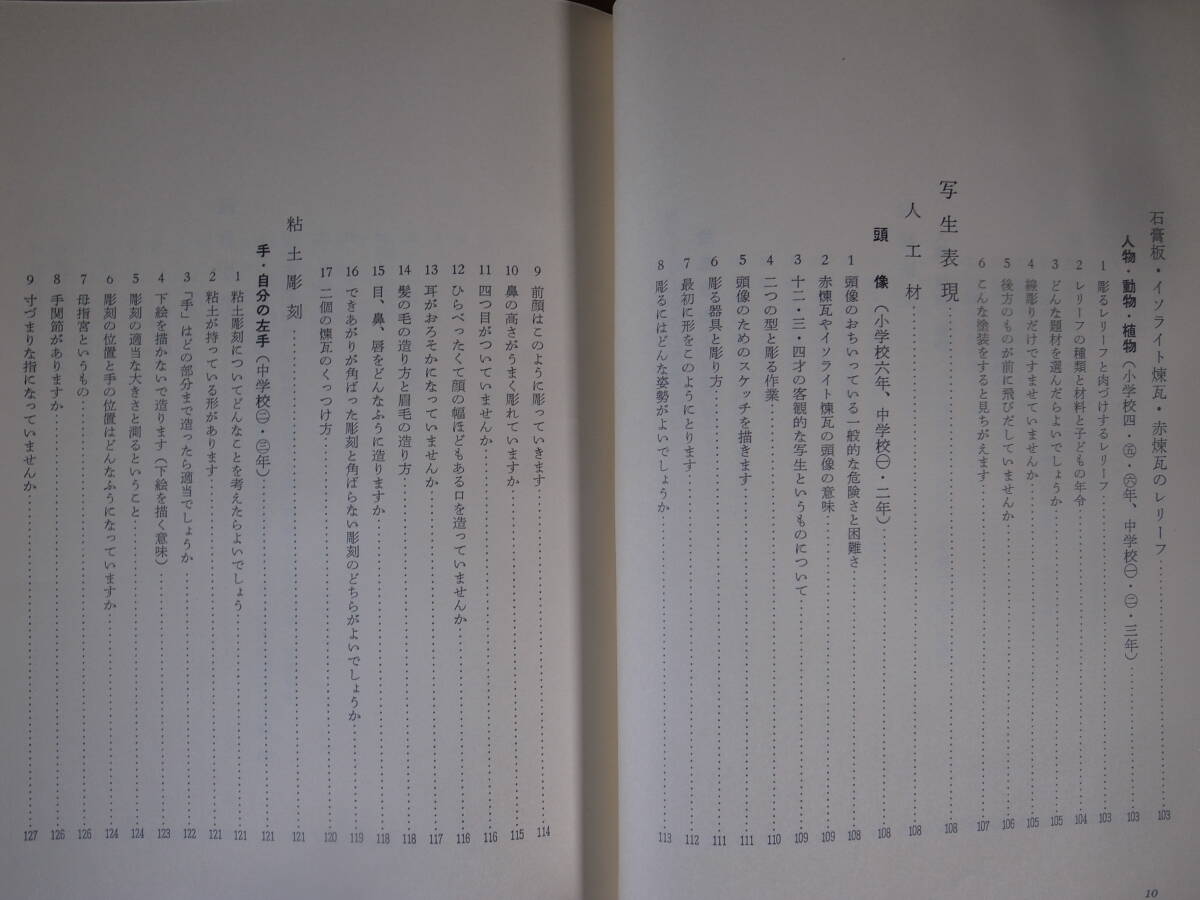 石膏板・イソライト煉瓦・赤煉瓦のレリーフ……103
人物・動物・植物（小学校四・㊄・㊅年、中学校㊀・㊁・三年）……103
1 彫るレリーフと肉づけするレリーフ……103
2 レリーフの種類と材料と子どもの年令……104
3 どんな題材を選んだらよいでしょうか……105
4 線彫りだけですませていませんか……105
5 後方のものが前に飛びだしていませんか……106
6 こんな塗装をすると見ちがえます……107
写生表現……108
人工材……108
頭像（小学校六年、中学校㊀・二年）……108
1 頭像のおちいっている一般的な危険さと困難さ……108
2 赤煉瓦やイソライト煉瓦の頭像の意味……109
3 十二・三・四才の客観的な写生というものについて……109
4 二つの型と彫る作業……110
5 頭像のためのスケッチを描きます……111
6 彫る器具と彫り方……111
7 最初に形をこのようにとります……112
8 彫るにはどんな姿勢がよいでしょうか……113
10
9 前顔はこのように彫っていきます……114
10 鼻の高さがうまく彫れていますか……115
11 四つ目がついていませんか……116
12 ひらべったくて顔の幅ほどもある口を造っていませんか……116
13 耳がおろそかになっていませんか……117
14 髪の毛の造り方と眉毛の造り方……118
15 目、鼻、唇をどんなふうに造りますか……118
16 できあがりが角ばった彫刻と角ばらない彫刻のどちらがよいでしょうか……119
17 二個の煉瓦のくっつけ方……120
粘土彫刻……121
手・自分の左手（中学校㊁・㊂年）……121
1 粘土彫刻についてどんなことを考えたらよいでしょう……121
2 粘土が持っている形があります……121
3 「手」はどの部分まで造ったら適当でしょうか……122
4 下絵を描かないで造ります（下絵を描く意味）……123
5 彫刻の適当な大きさと測るということ……124
6 彫刻の位置と手の位置はどんなふうになっていますか……124
7 母指宮というもの……126
8 手関節がありますか……126
9 寸づまりな指になっていませんか……127